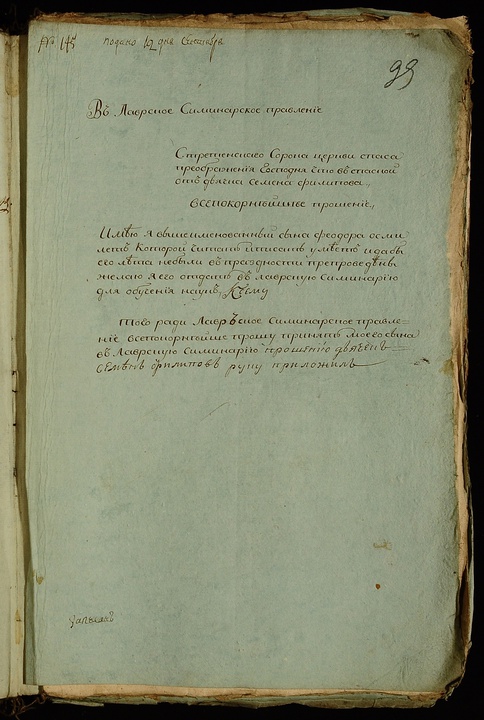 № 145 подано 12 дня Сентября
99
Въ Лаврское Симинарское правленїе
Стретенскаго Сорока церкви спаса
преображенїя Господня что въ спаской
отъ дьячка Семена филипова,
всепокорнѣйшѣе прошенїе,
Имѣю я вышеименованный сына феодора осми
летъ которой читать и писать умѣетъ и дабы
его лѣта небыли въ праздности препровождены
желаю я его отдать въ лаврскую симинарїю
для обученїя наукъ, Къ сему
Того ради Лаврьское Симинарское правле-
нїе всепокорнѣйше прошу принять моего сына
въ Лаврскую симинарїю прошенїю дьячекъ
семенъ филиповъ руку приложилъ
Записанъ